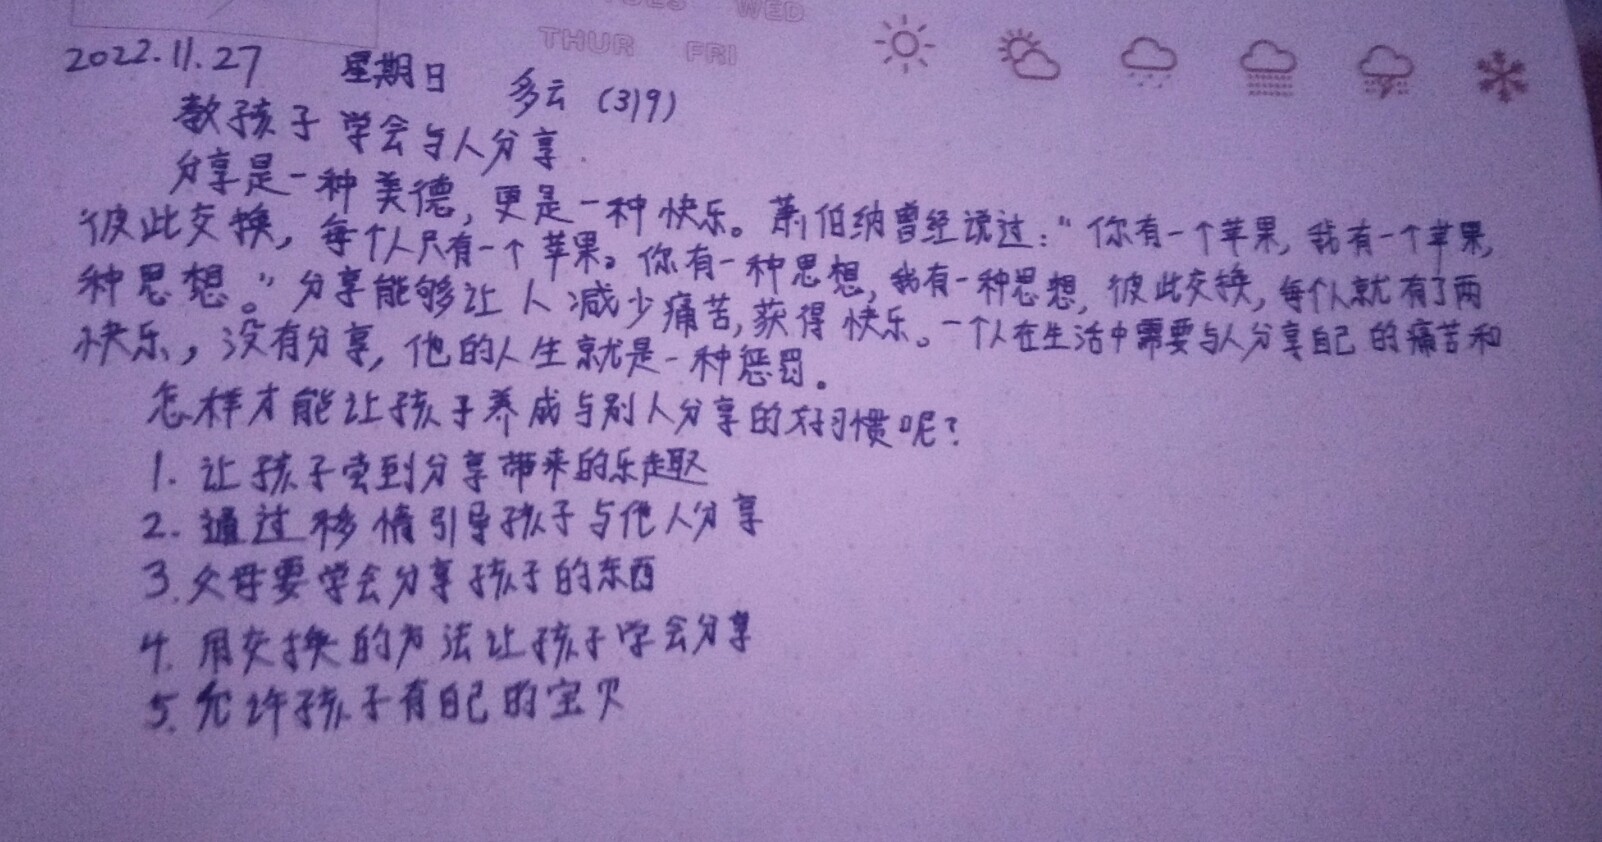 TUES WED
THUR FRI
2022.11.27 星期日 多云 (319)
教孩子学会与人分享
分享是一种美德，更是一种快乐。萧伯纳曾经说过：“你有一个苹果，我有一个苹果，
彼此交换，每个人只有一个苹果。你有一种思想，我有一种思想，彼此交换，每个人就有了两
种思想。”分享能够让人减少痛苦，获得快乐。一个人在生活中需要与人分享自己的痛苦和
快乐，没有分享，他的人生就是一种惩罚。
怎样才能让孩子养成与别人分享的好习惯呢？
1. 让孩子尝到分享带来的乐趣
2. 通过移情引导孩子与他人分享
3. 父母要学会分享孩子的东西
4. 用交换的方法让孩子学会分享
5. 允许孩子有自己的宝贝